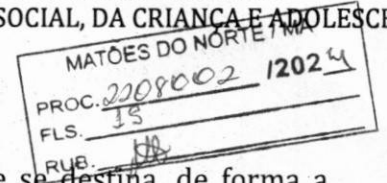 SOCIAL, DA CRIANÇA E ADOLESCE
MATÕES DO NORTE / MA
PROC. 2208002 /2024
FLS. 15
RUB.
e se destina, de forma a